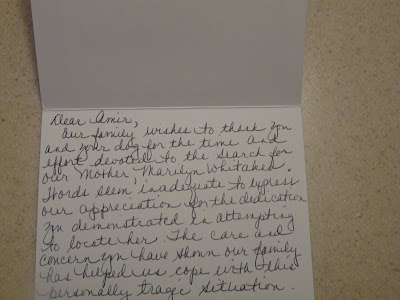 Dear Amir,
Our family wishes to thank you
and your dog for the time and
effort devoted to the search for
our Mother, Marilyn Whitaker.
Words seem inadequate to express
our appreciation for the dedication
you demonstrated in attempting
to locate her. The care and
concern you have shown our family
has helped us cope with this
personally tragic situation.